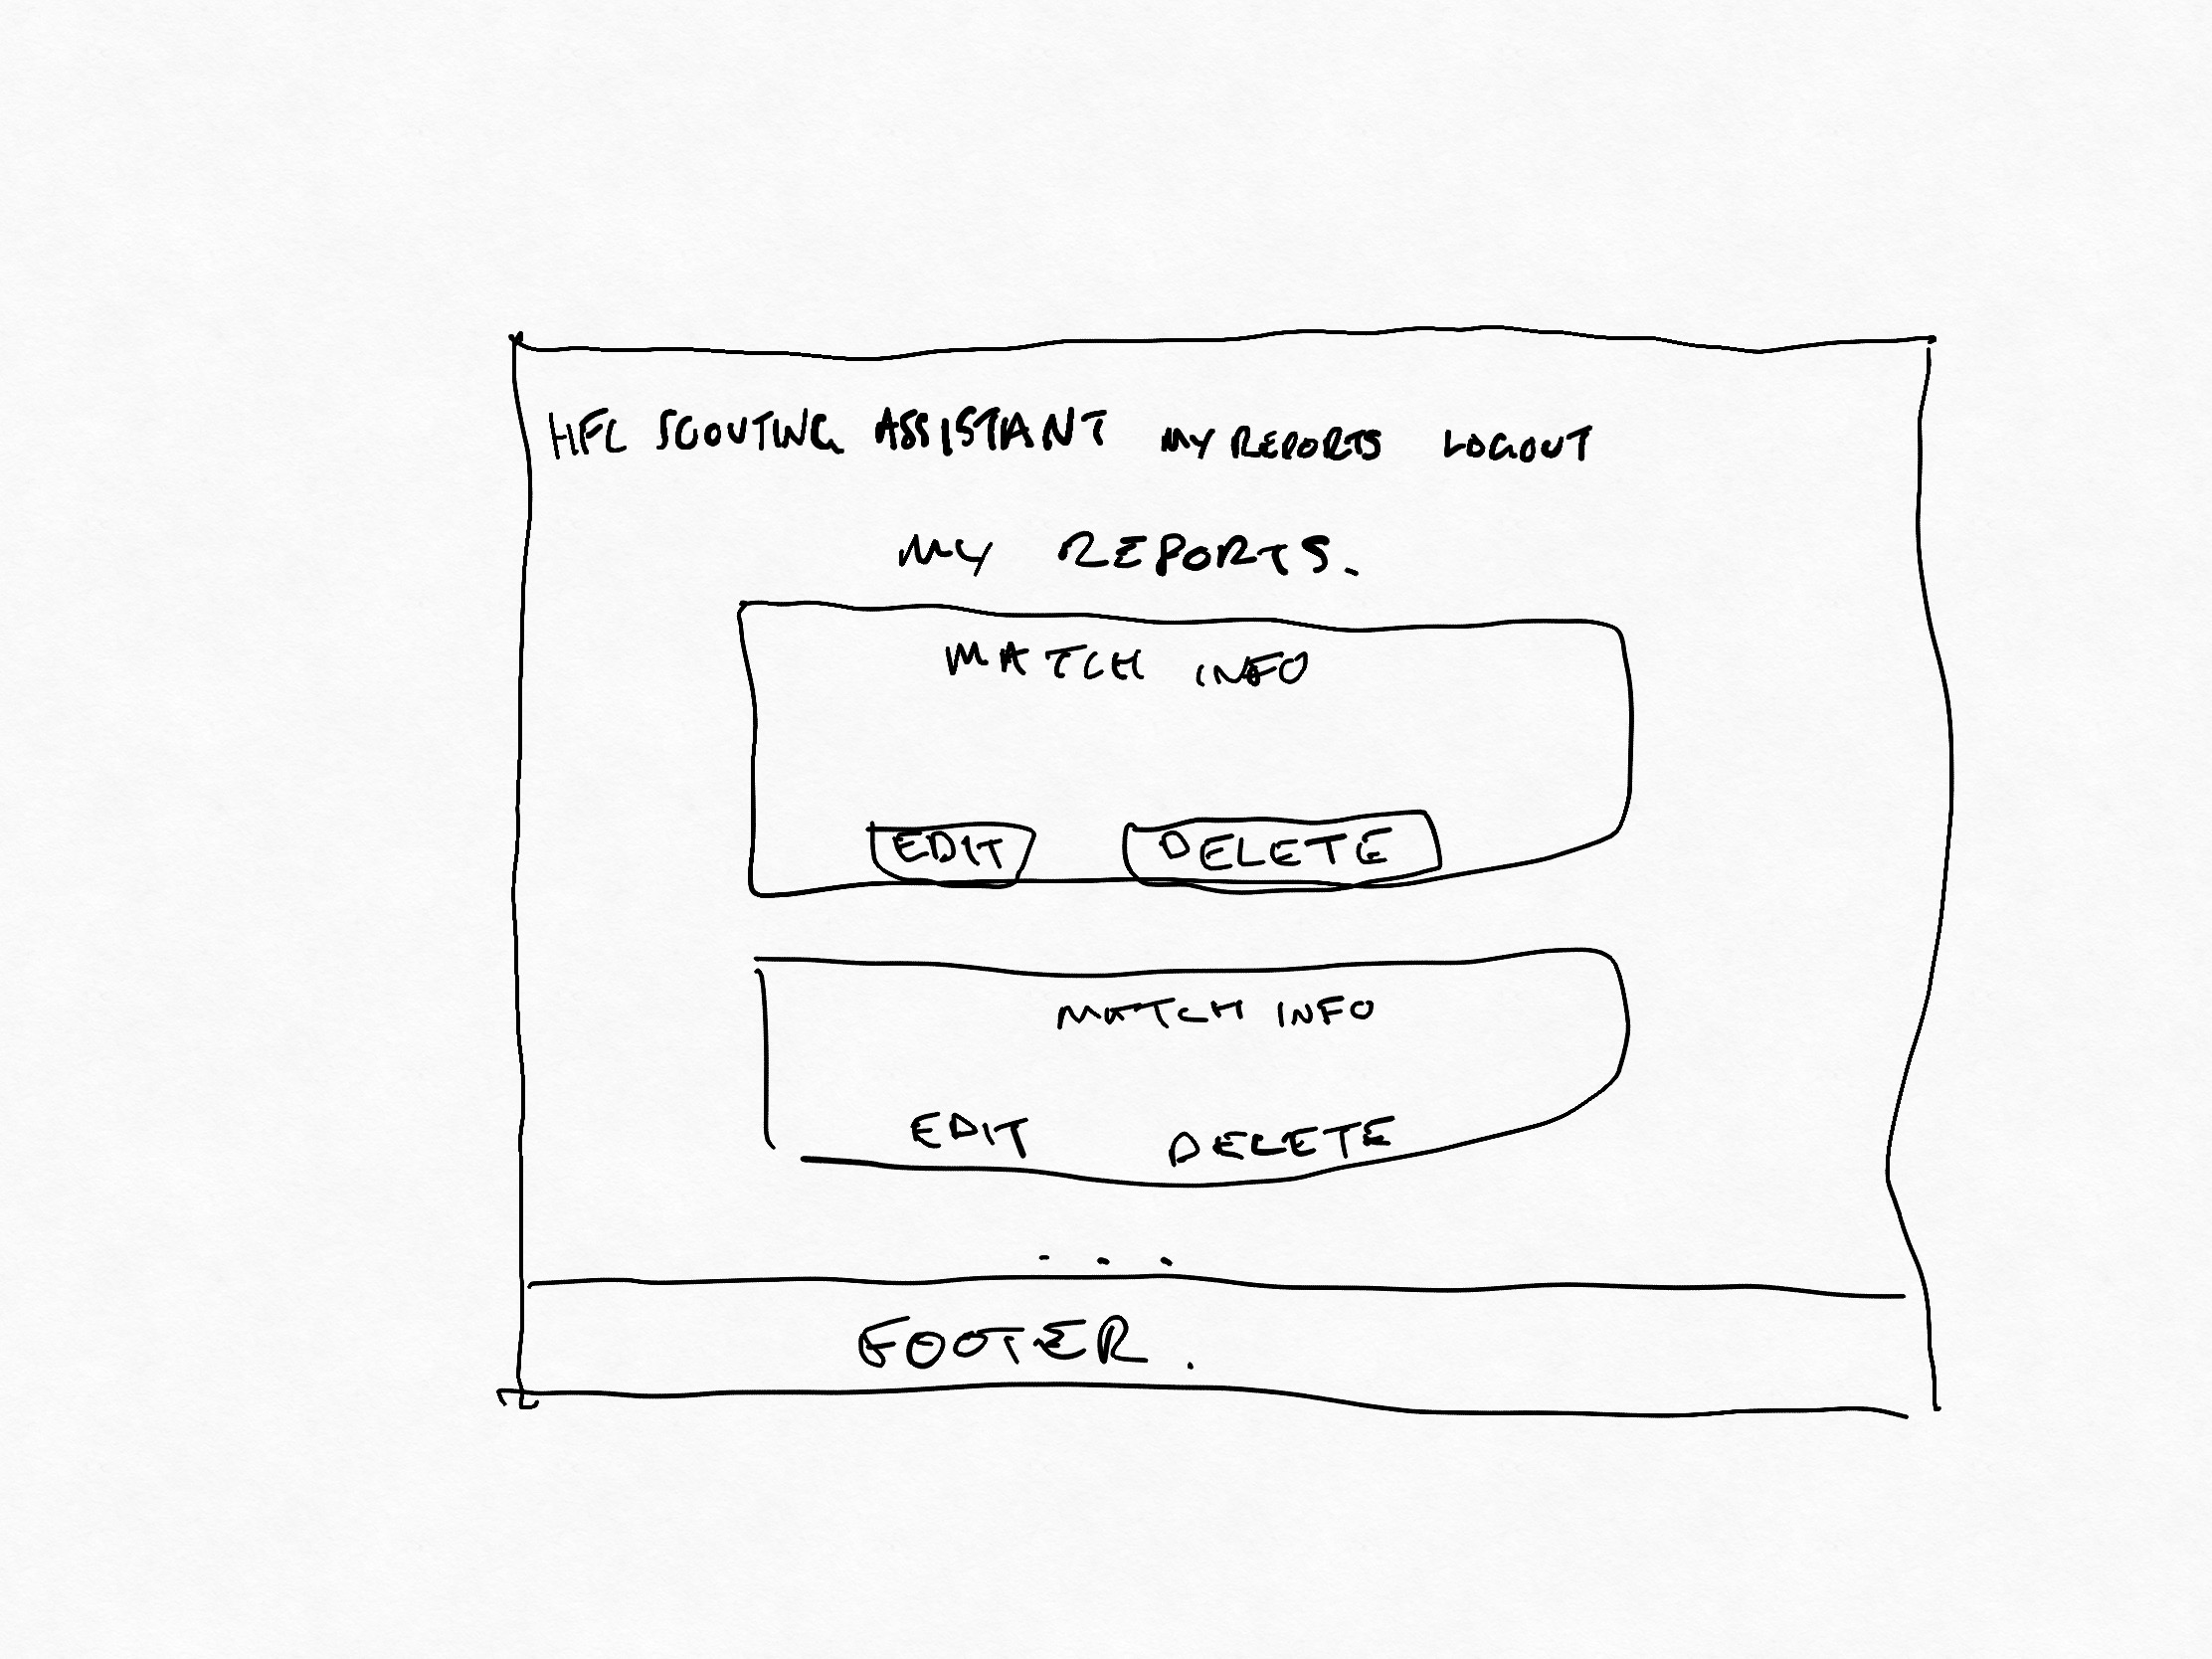 HFC SCOUTING ASSISTANT MY REPORTS LOGOUT
MY REPORTS.
MATCH INFO
EDIT DELETE
MATCH INFO
EDIT DELETE
...
FOOTER.